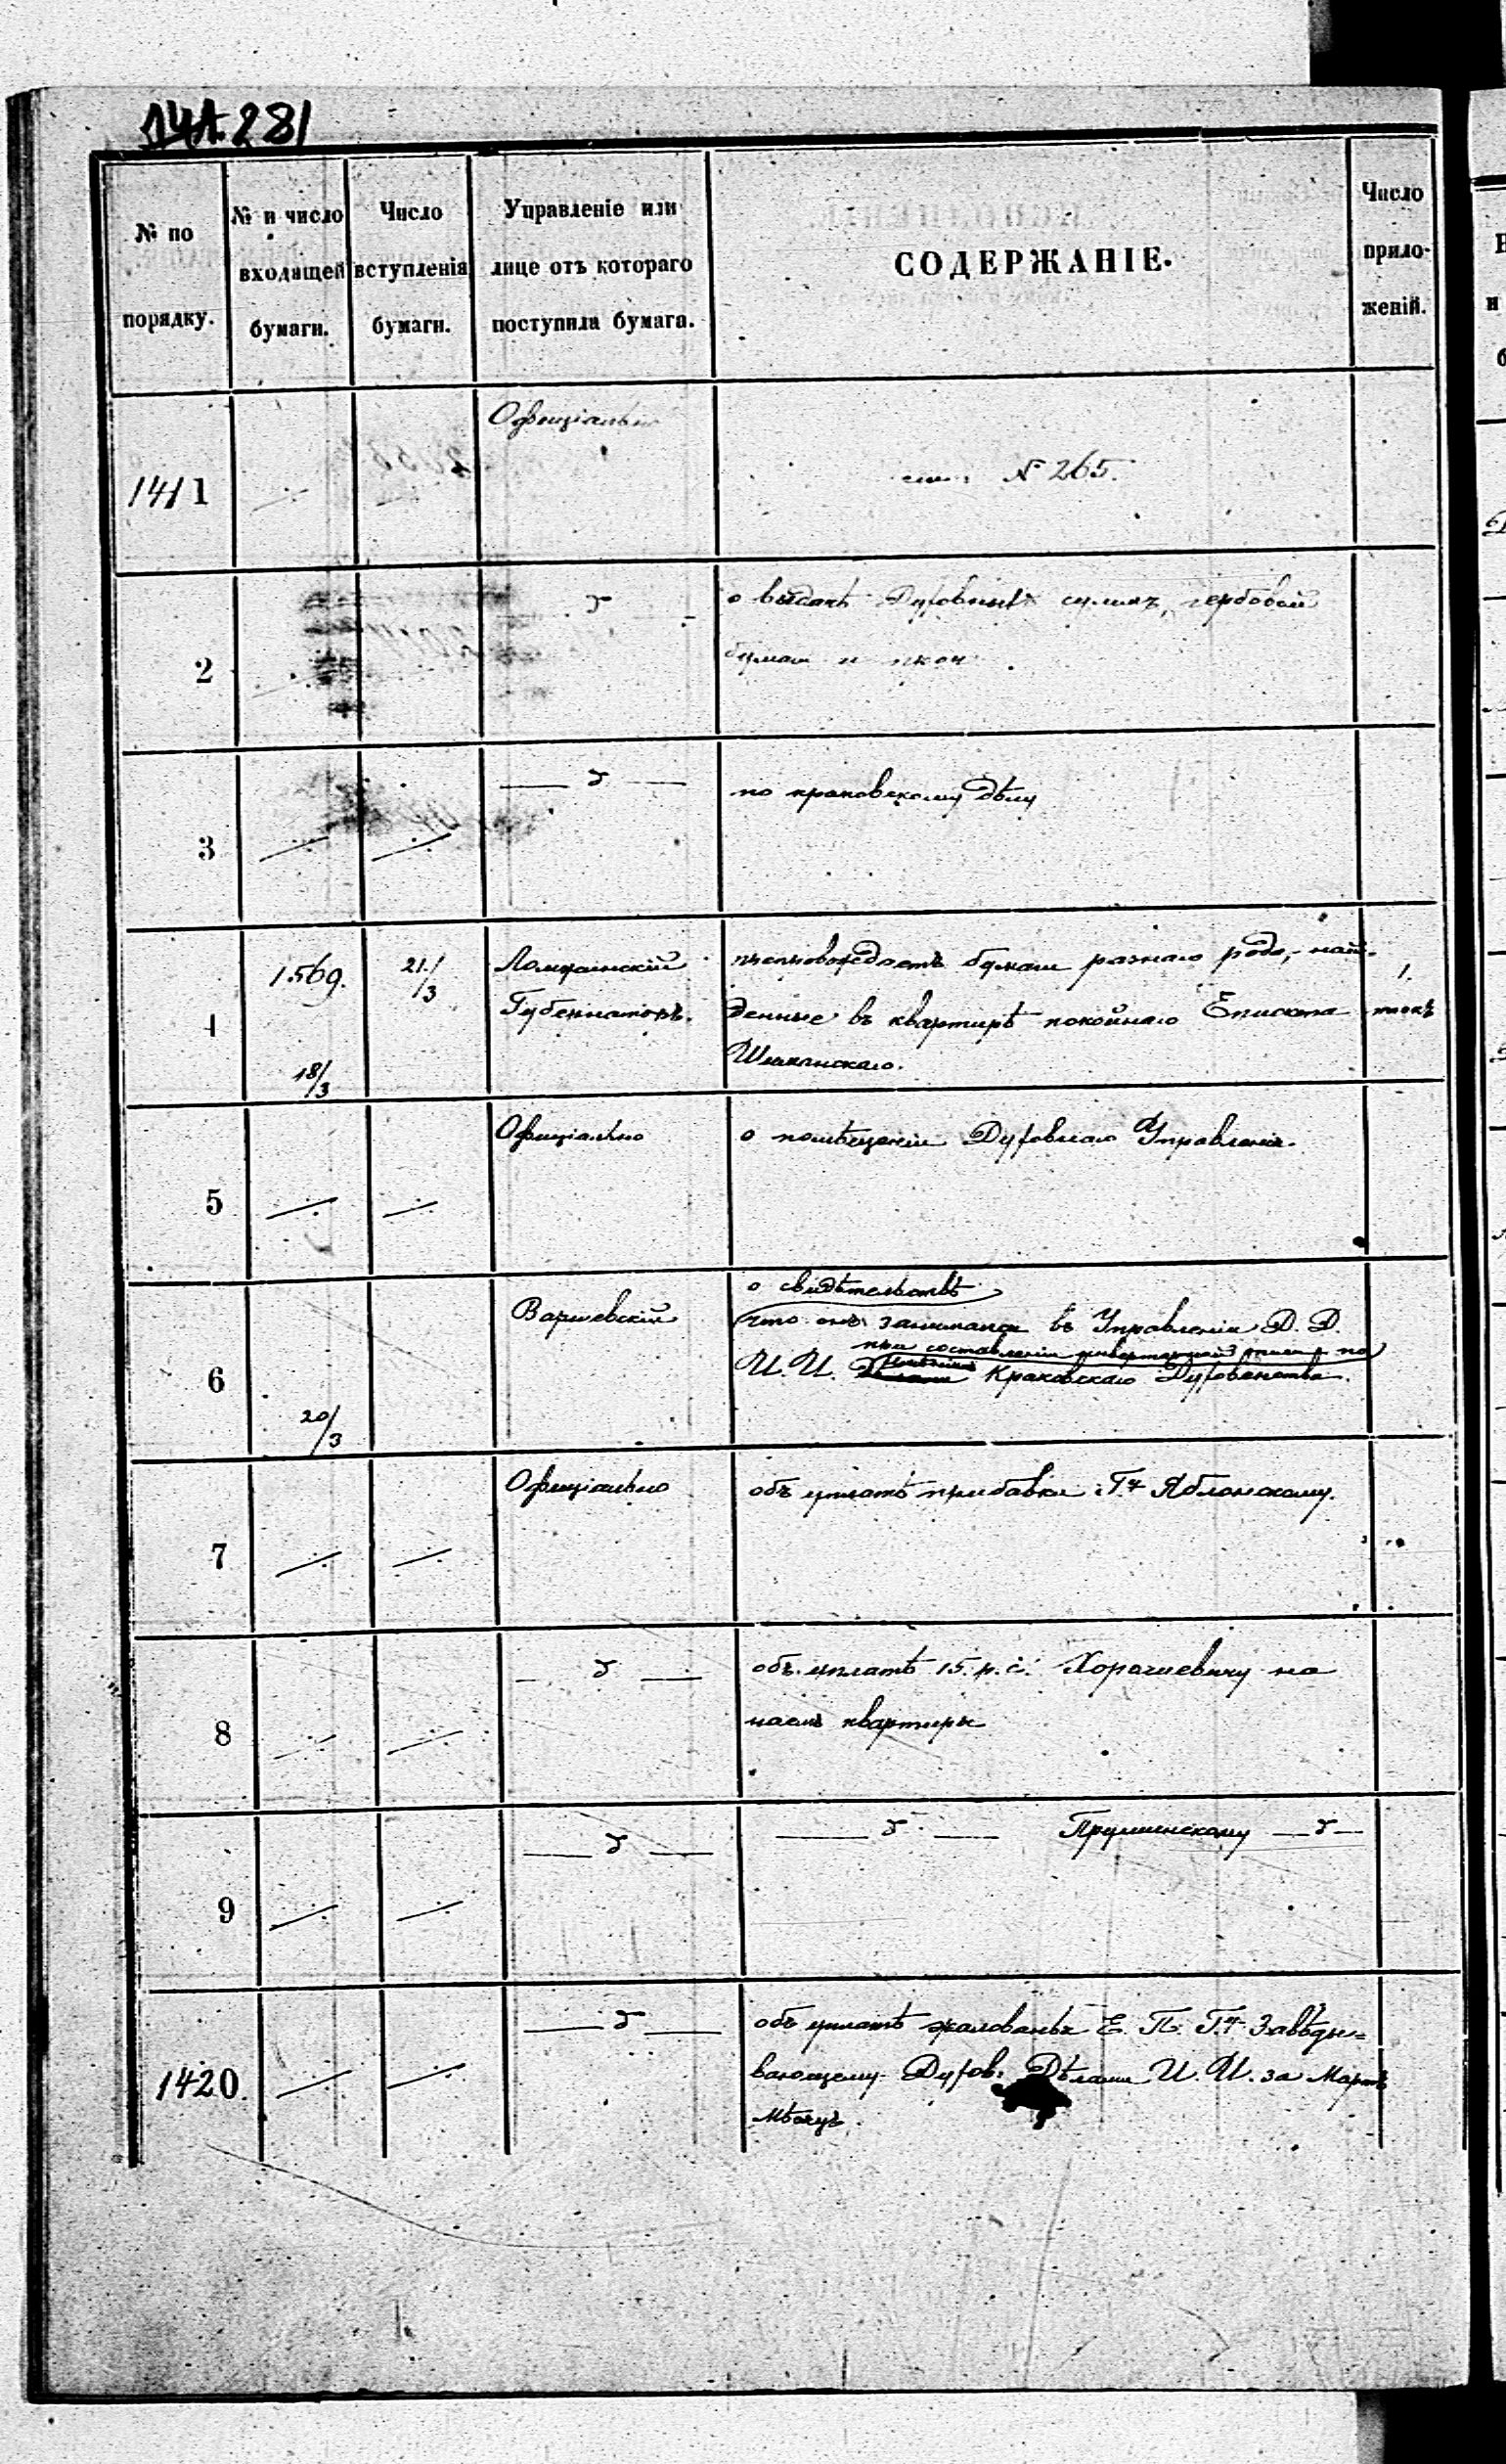 281
№ по порядку.
№ и число входящей бумаги.
Число вступленія бумаги.
Управленіе или лице отъ котораго поступила бумага.
СОДЕРЖАНІЕ.
Число приложеній.
1411
Офиціально
№ 265.
2
о выдачѣ Духовныхъ суммъ, гербовой
бумаги и
3
по краковскому дѣлу
4
1569.
18/3
21/3
Ломжинскій
Губернаторъ.
препровождаетъ бумаги разнаго рода, най-
денные въ квартирѣ покойнаго Епископа
1.
5
Офиціально
о помѣщеніи Духовнаго Управленія.
6
20/3
Варшевскій
о свидѣтельствѣ
что онъ занимался въ Управленіи Д. Д.
при составленіи по
И. И. Краковскаго Духовенства.
7
Офиціально
объ уплатѣ прибавки Г. Яблонскому.
8
объ уплатѣ 15. р. с. Хорашевичу на
наемъ квартиры
9
Прушинскому
1420.
объ уплатѣ жалованья Е. П. Г. Завѣды=
вающему Духов. Дѣлами И. И. за Мартъ
мѣсяцъ.